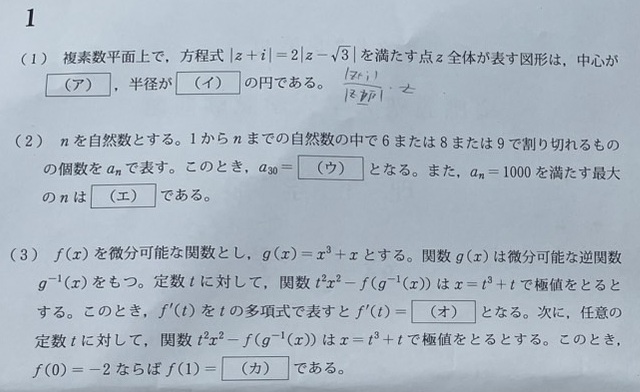 1
(1) 複素数平面上で，方程式 |z+i|=2|z−√3| を満たす点 z 全体が表す図形は，中心が
(ア) ，半径が (イ) の円である。
(2) n を自然数とする。1 から n までの自然数の中で 6 または 8 または 9 で割り切れるもの
の個数を aₙ で表す。このとき，a₃₀= (ウ) となる。また，aₙ=1000 を満たす最大
の n は (エ) である。
(3) f(x) を微分可能な関数とし，g(x)=x³+x とする。関数 g(x) は微分可能な逆関数
g⁻¹(x) をもつ。定数 t に対して，関数 t²x²−f(g⁻¹(x)) は x=t³+t で極値をとると
する。このとき，f′(t) を t の多項式で表すと f′(t)= (オ) となる。次に，任意の
定数 t に対して，関数 t²x²−f(g⁻¹(x)) は x=t³+t で極値をとるとする。このとき，
f(0)=−2 ならば f(1)= (カ) である。